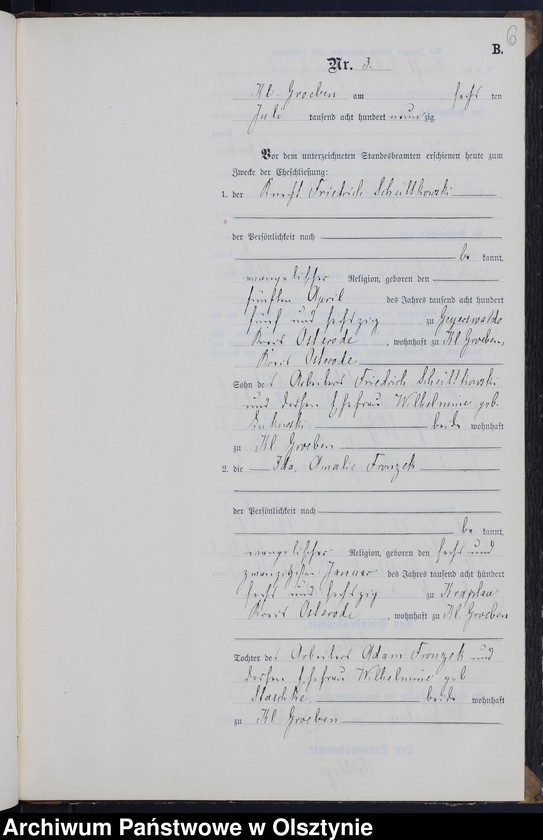 6
B.
Nr. 3.
Kl. Groeben am sechs ten
Juli tausend acht hundert neun zig
Vor dem unterzeichneten Standesbeamten erschienen heute zum
Zwecke der Eheschließung:
1. der Knecht Friedrich Schüttkowski
der Persönlichkeit nach
be kannt,
evangelischer Religion, geboren den
fünften April des Jahres tausend acht hundert
fünf und sechszig zu Geyerswalde
Kreis Osterode, wohnhaft zu Kl. Groeben,
Kreis Osterode
Sohn des Arbeiters Friedrich Schüttkowski
und dessen Ehefrau Wilhelmine geb.
beide wohnhaft
zu Kl Groeben
2. die Ida, Amalie Fronzek
der Persönlichkeit nach
be kannt,
evangelischer Religion, geboren den sechs und
zwanzigsten Januar des Jahres tausend acht hundert
sechs und sechszig zu Kraplau
Kreis Osterode, wohnhaft zu Kl. Groeben
Tochter des Arbeiters Adam Fronzek und
dessen Ehefrau Wilhelmine geb
Staschke, beide wohnhaft
zu Kl Groeben
Archiwum Państwowe w Olsztynie